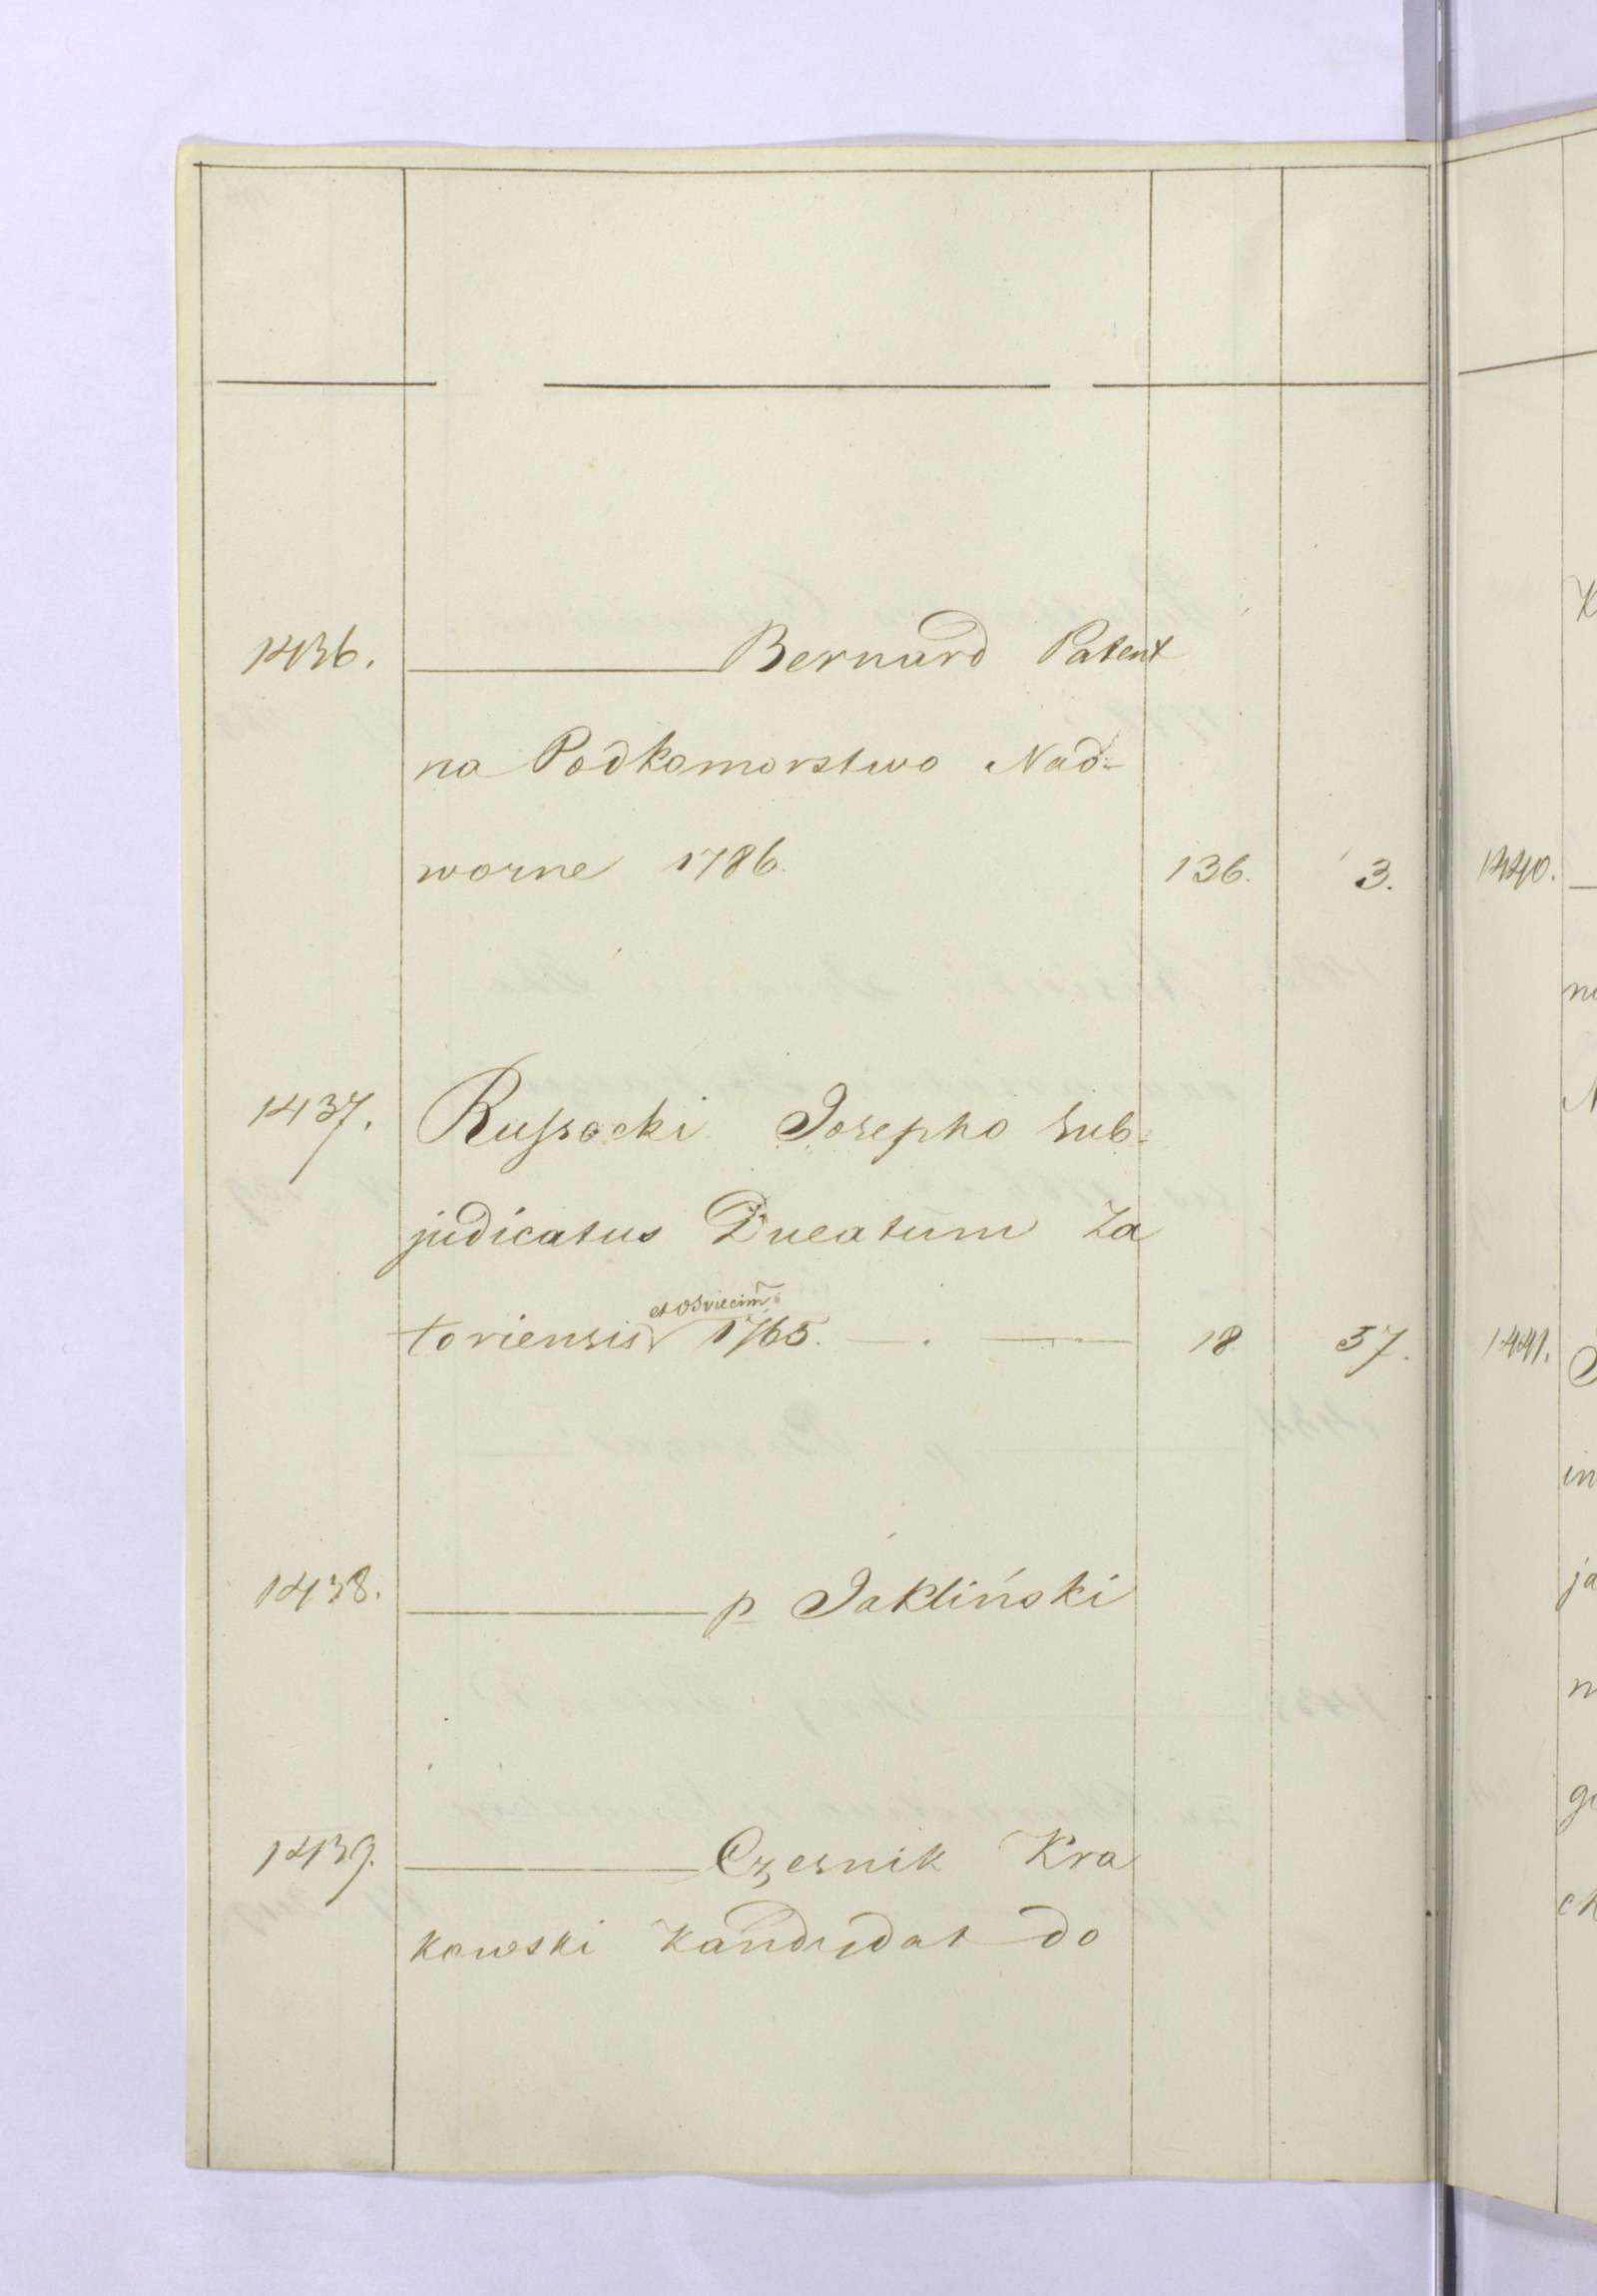 1436. ———— Bernard Patent
na Podkomorstwo Nad-
worne 1786. 136. 3.
1437. Russocki Josepho sub-
judicatus Ducatum Za
et Osviecim:
toriensis 1765. —.— 18 57.
1438. ———— p Jakliński
1439. ———— Czesnik Kra
kowski Kandydat do
1440.
1441.